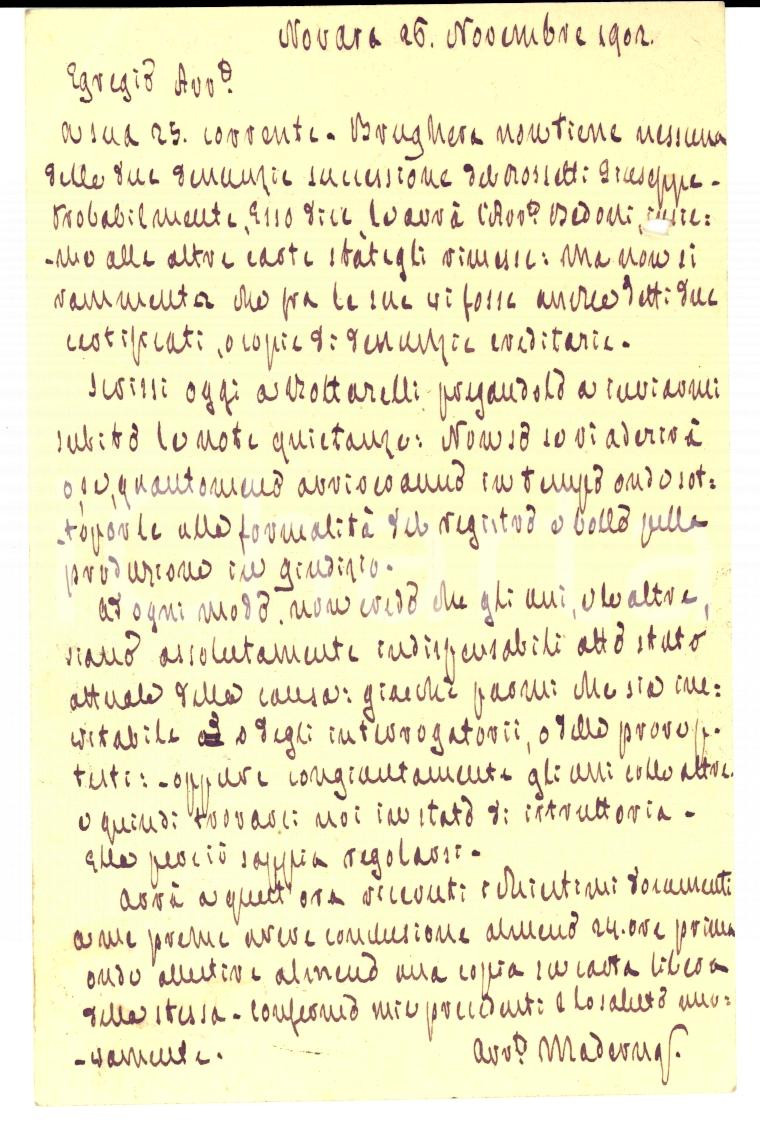 Novara 26. Novembre 1902.
Egregio Avvo
a sua 25. corrente - Brughera non tiene nessuna
delle due denunzie successione del Rossetti Giuseppe -
Probabilmente, Esso dice le avrà l'Avvo Bedoni, insie:
-me alle altre carte stategli rimesse: Ma non si
rammenta che fra le sue vi fosse anche detti due
certificati, o copie di denunzie ereditarie -
Scrissi oggi a Bottarelli pregandolo a inviarmi
subito le note quietanze: Non so se vi aderirà
o se, quantomeno arriveranno in tempo onde sot:
-toporle alla formalità del registro e bollo per la
produzione in giudizio -
Ad ogni modo, non credo che gli uni, e le altre,
siano assolutamente indispensabili allo stato
attuale della causa: giacchè parmi che sia ine:
vitabile o degli interrogatorii, o della prova p.
testi: - oppure congiuntamente gli uni colle altre.
e quindi trovarci noi in stato di istruttoria -
Ella perciò sappia regolarsi -
Avrà a quest'ora ricevuti i chiestimi documenti
a me preme avere conclusione almeno 24. ore prima
onde allestire almeno una copia in carta libera
della stessa - Confermo mie precedenti e la saluto nuo:
-vamente. Avvo Maderna